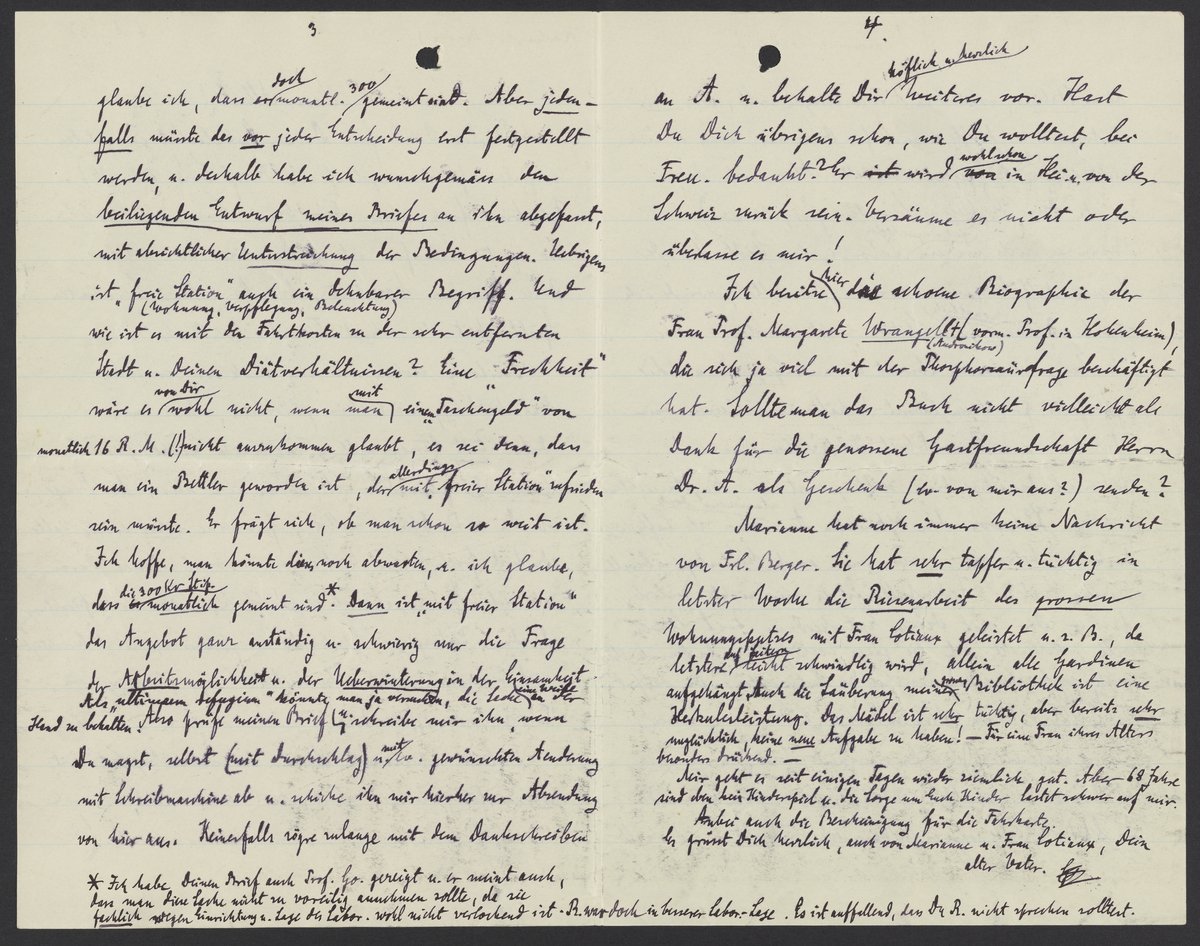 3
glaube ich, dass er doch monatl. 300 gemeint sind. Aber jeden-
falls müsste das vor jeder Entscheidung erst festgestellt
werden, u. deshalb habe ich wunschgemäss den
beiliegenden Entwurf meines Briefes an ihn abgefasst,
mit absichtlicher Unterstreichung der Bedingungen. Uebrigens
ist „freie Station" auch ein dehnbarer Begriff. Und
(Wohnung, Verpflegung, Beleuchtung)
wie ist es mit den Fahrtkosten zu der sehr entfernten
Stadt u. Deinen Diätverhältnissen? Eine „Frechheit"
wäre es von Dir wohl nicht, wenn man mit einem „Taschengeld" von
monatlich 16 R.M. (!) nicht auszukommen glaubt, es sei denn, dass
man ein Bettler geworden ist, der allerdings mit „freier Station" zufrieden
sein müsste. Er frägt sich, ob man schon so weit ist.
Ich hoffe, man könnte dies noch abwarten, u. ich glaube,
dass die 300 Kr Stip. monatlich gemeint sind*. Dann ist „mit freier Station"
das Angebot ganz anständig u. schwierig nur die Frage
der Arbeitsmöglichkeit u. der Ueberwinterung in der Einsamkeit.
Als „ultimum refugium" könnte man ja versuchen, die Sache in der
Hand zu behalten. Also prüfe meinen Brief u. schreibe mir ihn, wenn
Du magst, selbst (mit Durchschlag) u. mit ev. gewünschten Aenderung
mit Schreibmaschine ab u. schicke ihn mir hierher zur Absendung
von hier aus. Keinerfalls zögre zulange mit dem Dankschreiben
* Ich habe Deinen Brief auch Prof. Go. gezeigt u. er meint auch,
dass man diese Sache nicht zu voreilig annehmen sollte, da sie
fachlich wegen Einrichtung u. Lage des Labor. wohl nicht verlockend ist. R. war doch in besserer Labor.-Lage. Es ist auffallend, dass Du R. nicht sprechen solltest.
4.
an A. u. behalte Dir höflich u. herzlich Weiteres vor. Hast
Du Dich übrigens schon, wie Du wolltest, bei
Freu. bedankt? Er wird wohl schon in Hei u. von der
Schweiz zurück sein. Versäume es nicht oder
überlasse es mir!
Ich besitze hier die schoene Biographie der
Frau Prof. Margarete Wrangell † (vorm. Prof. in Hohenheim),
(Andronikow)
die sich ja viel mit der Phosphorsäurefrage beschäftigt
hat. Sollte man das Buch nicht vielleicht als
Dank für die genossene Gastfreundschaft Herrn
Dr. A. als Geschenk (ev. von mir aus?) senden?
Marianne hat noch immer keine Nachricht
von Frl. Berger. Sie hat sehr tapfer u. tüchtig in
letzter Woche die Riesenarbeit des grossen
Wohnungsputzes mit Frau Cotiaux geleistet u. z. B., da
letztere auf Leitern leicht schwindlig wird, allein alle Gardinen
aufgehängt. Auch die Säuberung meiner Bibliothek ist eine
Herkulesleistung. Das Mädel ist sehr tüchtig, aber bereits sehr
unglücklich, keine neue Aufgabe zu haben! — Für eine Frau ihres Alters
besonders drückend. —
Mir geht es seit einigen Tagen wieder ziemlich gut. Aber 68 Jahre
sind eben kein Kinderspiel u. die Sorge um Euch Kinder lastet schwer auf mir.
Anbei auch die Bescheinigung für die Fahrkarte.
Es grüsst Dich herzlich, auch von Marianne u. Frau Cotiaux, Dein
alter Vater.